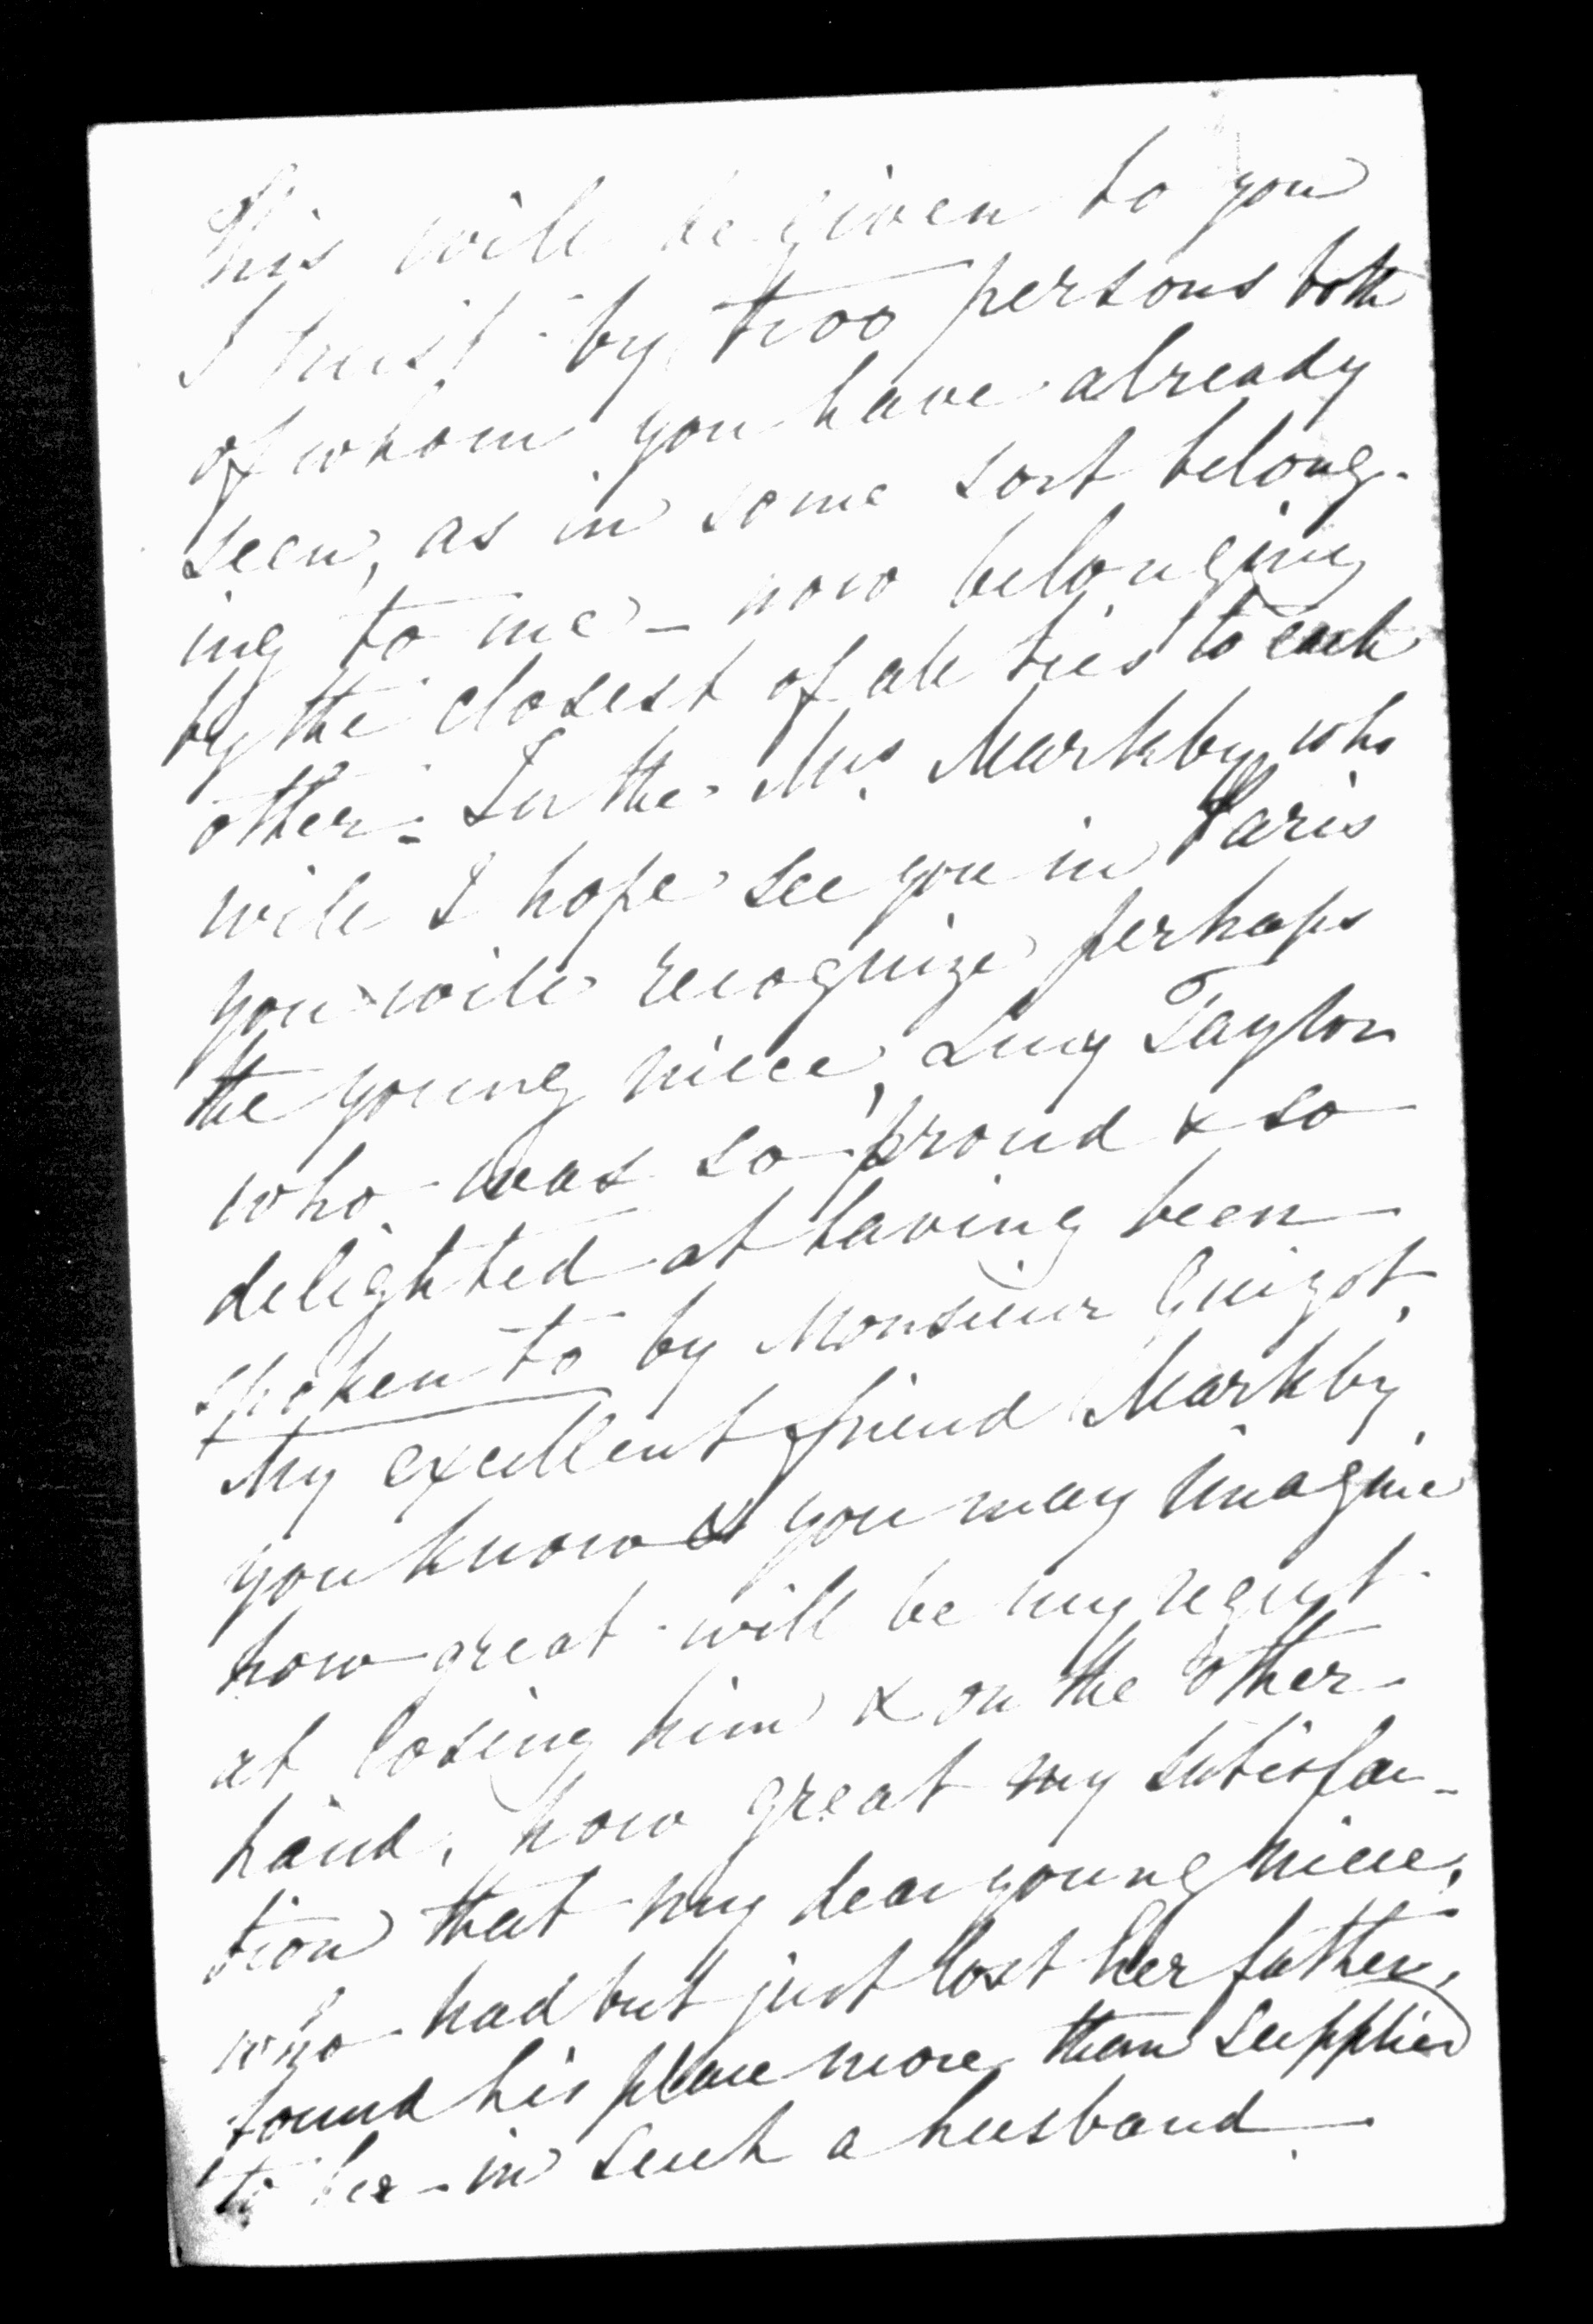 This will be given to you
I trust - by two persons both
of whom you have already
seen, as in some sort belong-
ing to me - now belonging
by the closest of all ties to each
other - In the Mrs. Markby who
will I hope see you in Paris
you will recognize perhaps
the young niece, Lucy Taylor
who was so proud & so
delighted at having been
spoken to by Monsieur Guizot.
My excellent friend Markby
you know & you may imagine
how great will be my regret
at losing him & on the other
hand, how great my satisfac-
tion that my dear young niece,
who had but just lost her father,
found his place more than supplied
to her - in such a husband